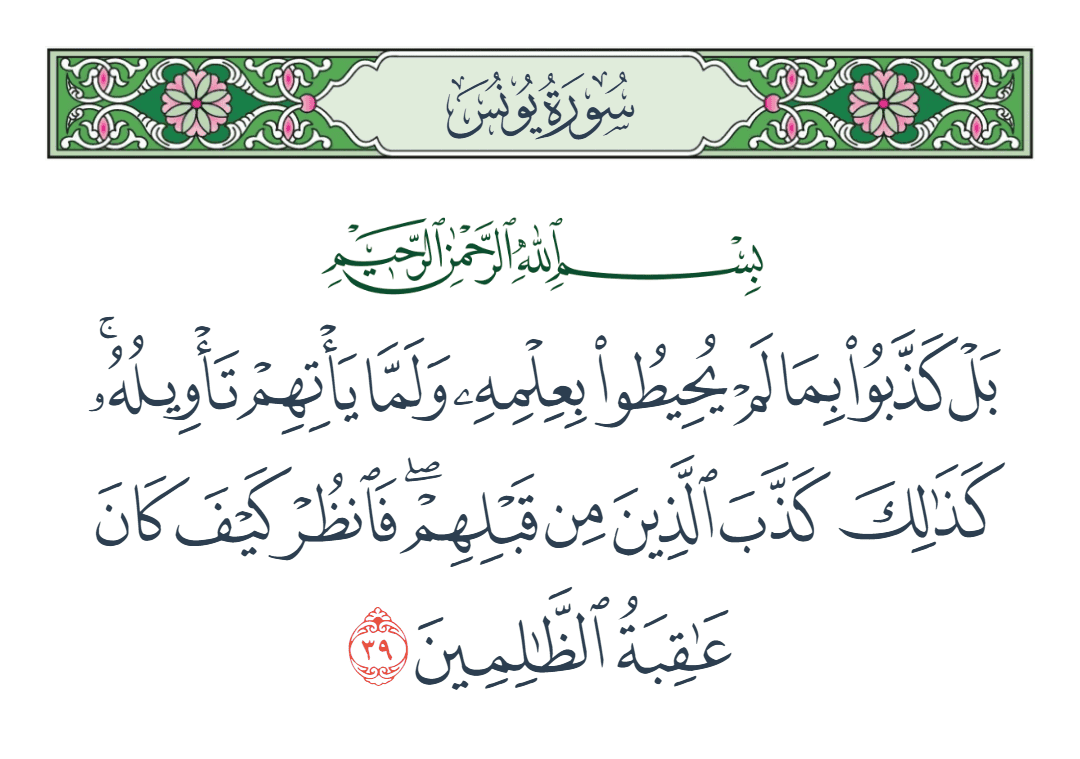 سُورَةُ يُونُسَ
بِسْمِ ٱللَّهِ ٱلرَّحْمَٰنِ ٱلرَّحِيمِ
بَلْ كَذَّبُوا۟ بِمَا لَمْ يُحِيطُوا۟ بِعِلْمِهِۦ وَلَمَّا يَأْتِهِمْ تَأْوِيلُهُۥ ۚ
كَذَٰلِكَ كَذَّبَ ٱلَّذِينَ مِن قَبْلِهِمْ ۖ فَٱنظُرْ كَيْفَ كَانَ
عَـٰقِبَةُ ٱلظَّـٰلِمِينَ ٣٩